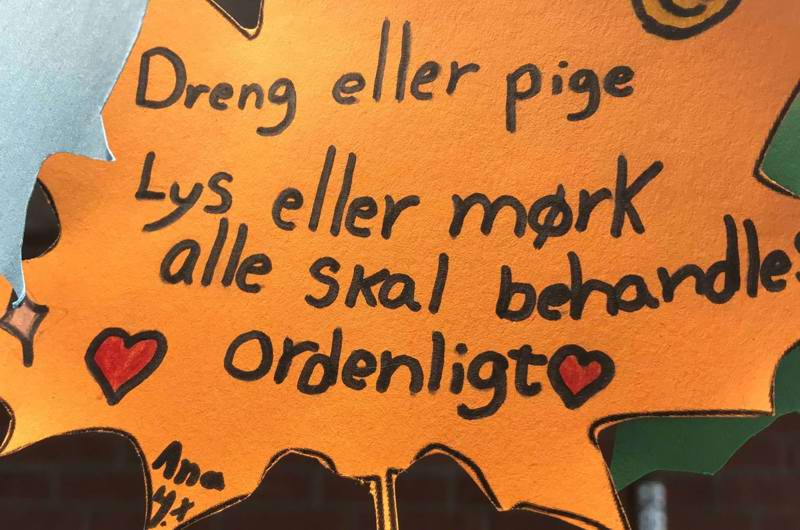 Dreng eller pige
Lys eller mørk
alle skal behandles
ordenligt
Ana
4.x